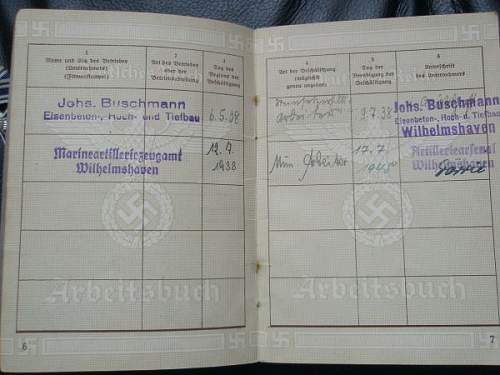 1
Name und Sitz des Betriebes
(Unternehmers)
(Firmenstempel)
2
Art des Betriebes
oder der
Betriebsabteilung
3
Tag des
Beginns der
Beschäftigung
Johs. Buschmann
Eisenbeton-, Hoch- und Tiefbau
6.5.38
Marineartilleriezeugamt
Wilhelmshaven
12.7.
1938
Arbeitsbuch
6
4
Art der Beschäftigung
(möglichst
genau angeben)
5
Tag der
Beendigung der
Beschäftigung
6
Unterschrift
des Unternehmers
9.7.38
Johs. Buschmann
Eisenbeton-, Hoch- u. Tiefbau
Wilhelmshaven
Arbeiter
17.7.
Artilleriearsenal
Wilhelmshaven
Arbeitsbuch
7